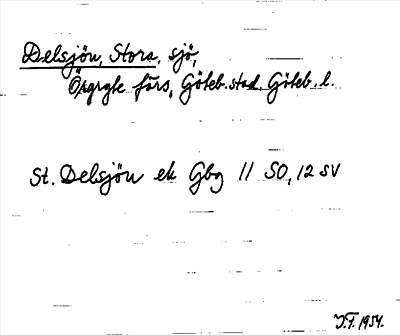 Delsjön, Stora, sjö,
Örgryte förs, Göteb. stad, Göteb. l.
St. Delsjön ek Gbg 11 SO, 12 SV
J.F. 1954.